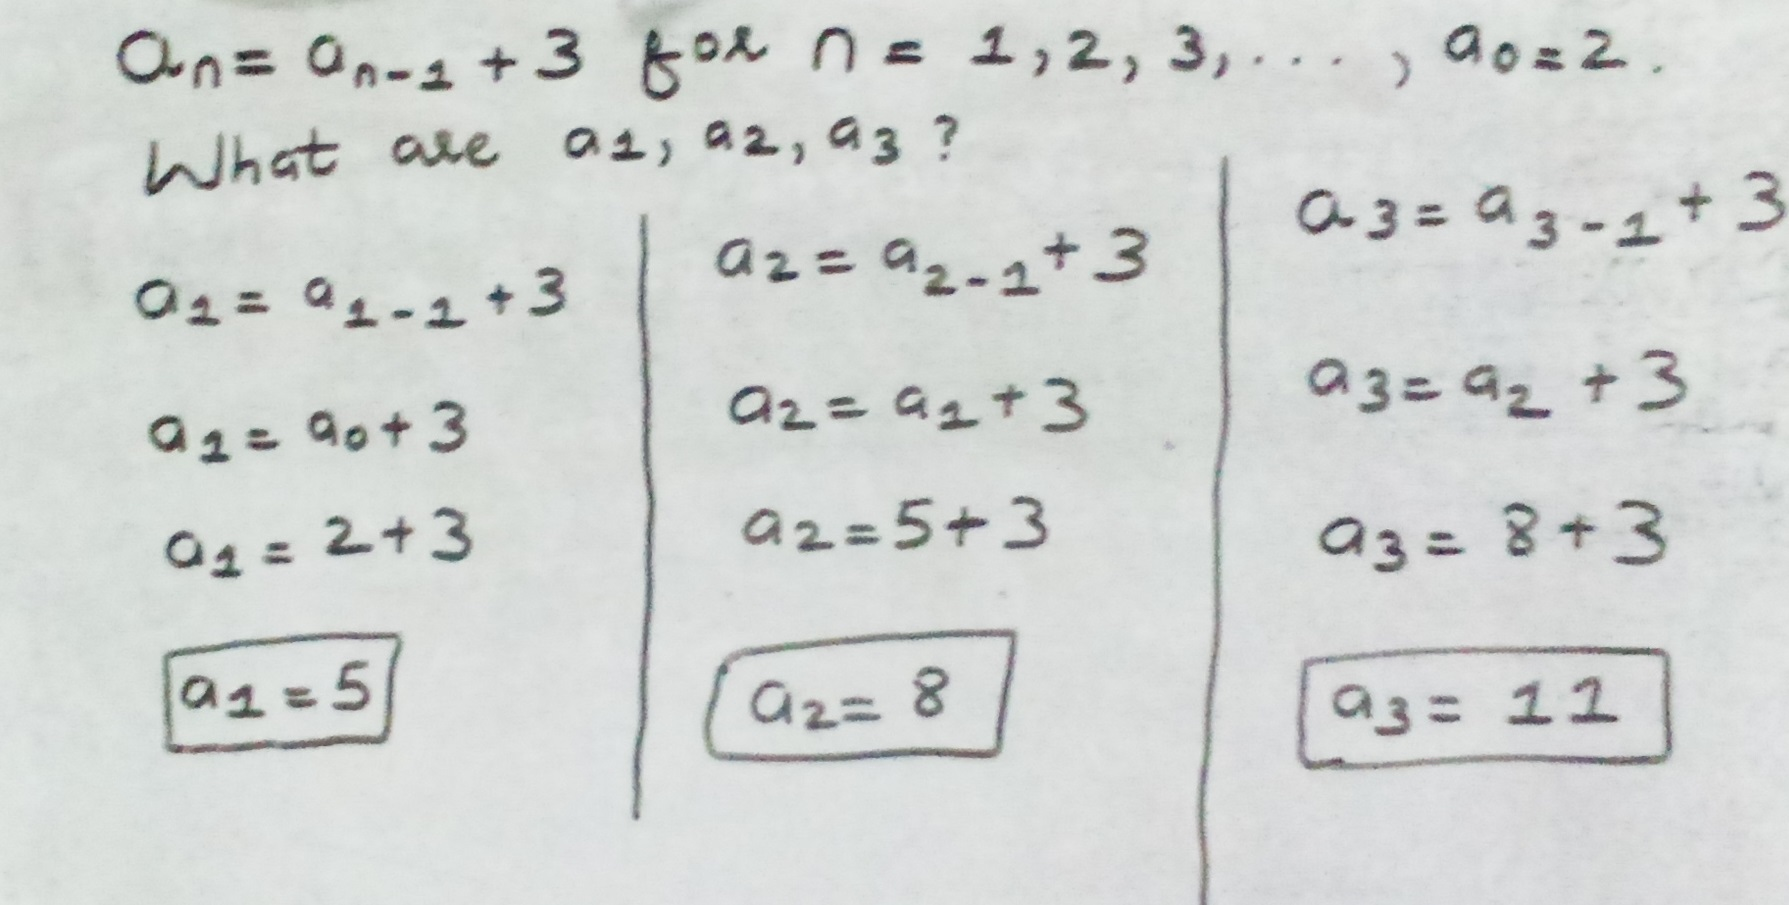 aₙ = aₙ₋₁ + 3 for n = 1, 2, 3, . . . . , a₀ = 2 .
What are a₁, a₂, a₃ ?
a₁ = a₁₋₁ + 3
a₁ = a₀ + 3
a₁ = 2 + 3
a₁ = 5
a₂ = a₂₋₁ + 3
a₂ = a₁ + 3
a₂ = 5 + 3
a₂ = 8
a₃ = a₃₋₁ + 3
a₃ = a₂ + 3
a₃ = 8 + 3
a₃ = 11